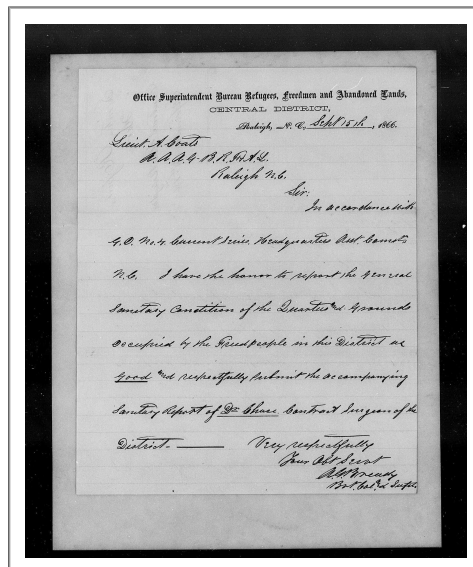 Office Superintendent Bureau Refugees, Freedmen and Abandoned Lands,
CENTRAL DISTRICT,
Raleigh, N. C., Sept 15th, 1866.
Lieut. A. Coats
A. A. A. G. B. R. F. & A. L.
Raleigh N.C.
Sir:
In accordance with
G.O. No 4 Current Series Headquarters Asst Comr
N.C. I have the honor to report the General
Sanitary Condition of the Quarters and Grounds
occupied by the Freedpeople in this District as
Good and respectfully submit the accompanying
Sanitary Report of Dr Chase Contract Surgeon of the
District.
Very respectfully
Your Obt Servt
Bvt Col. & Supt.